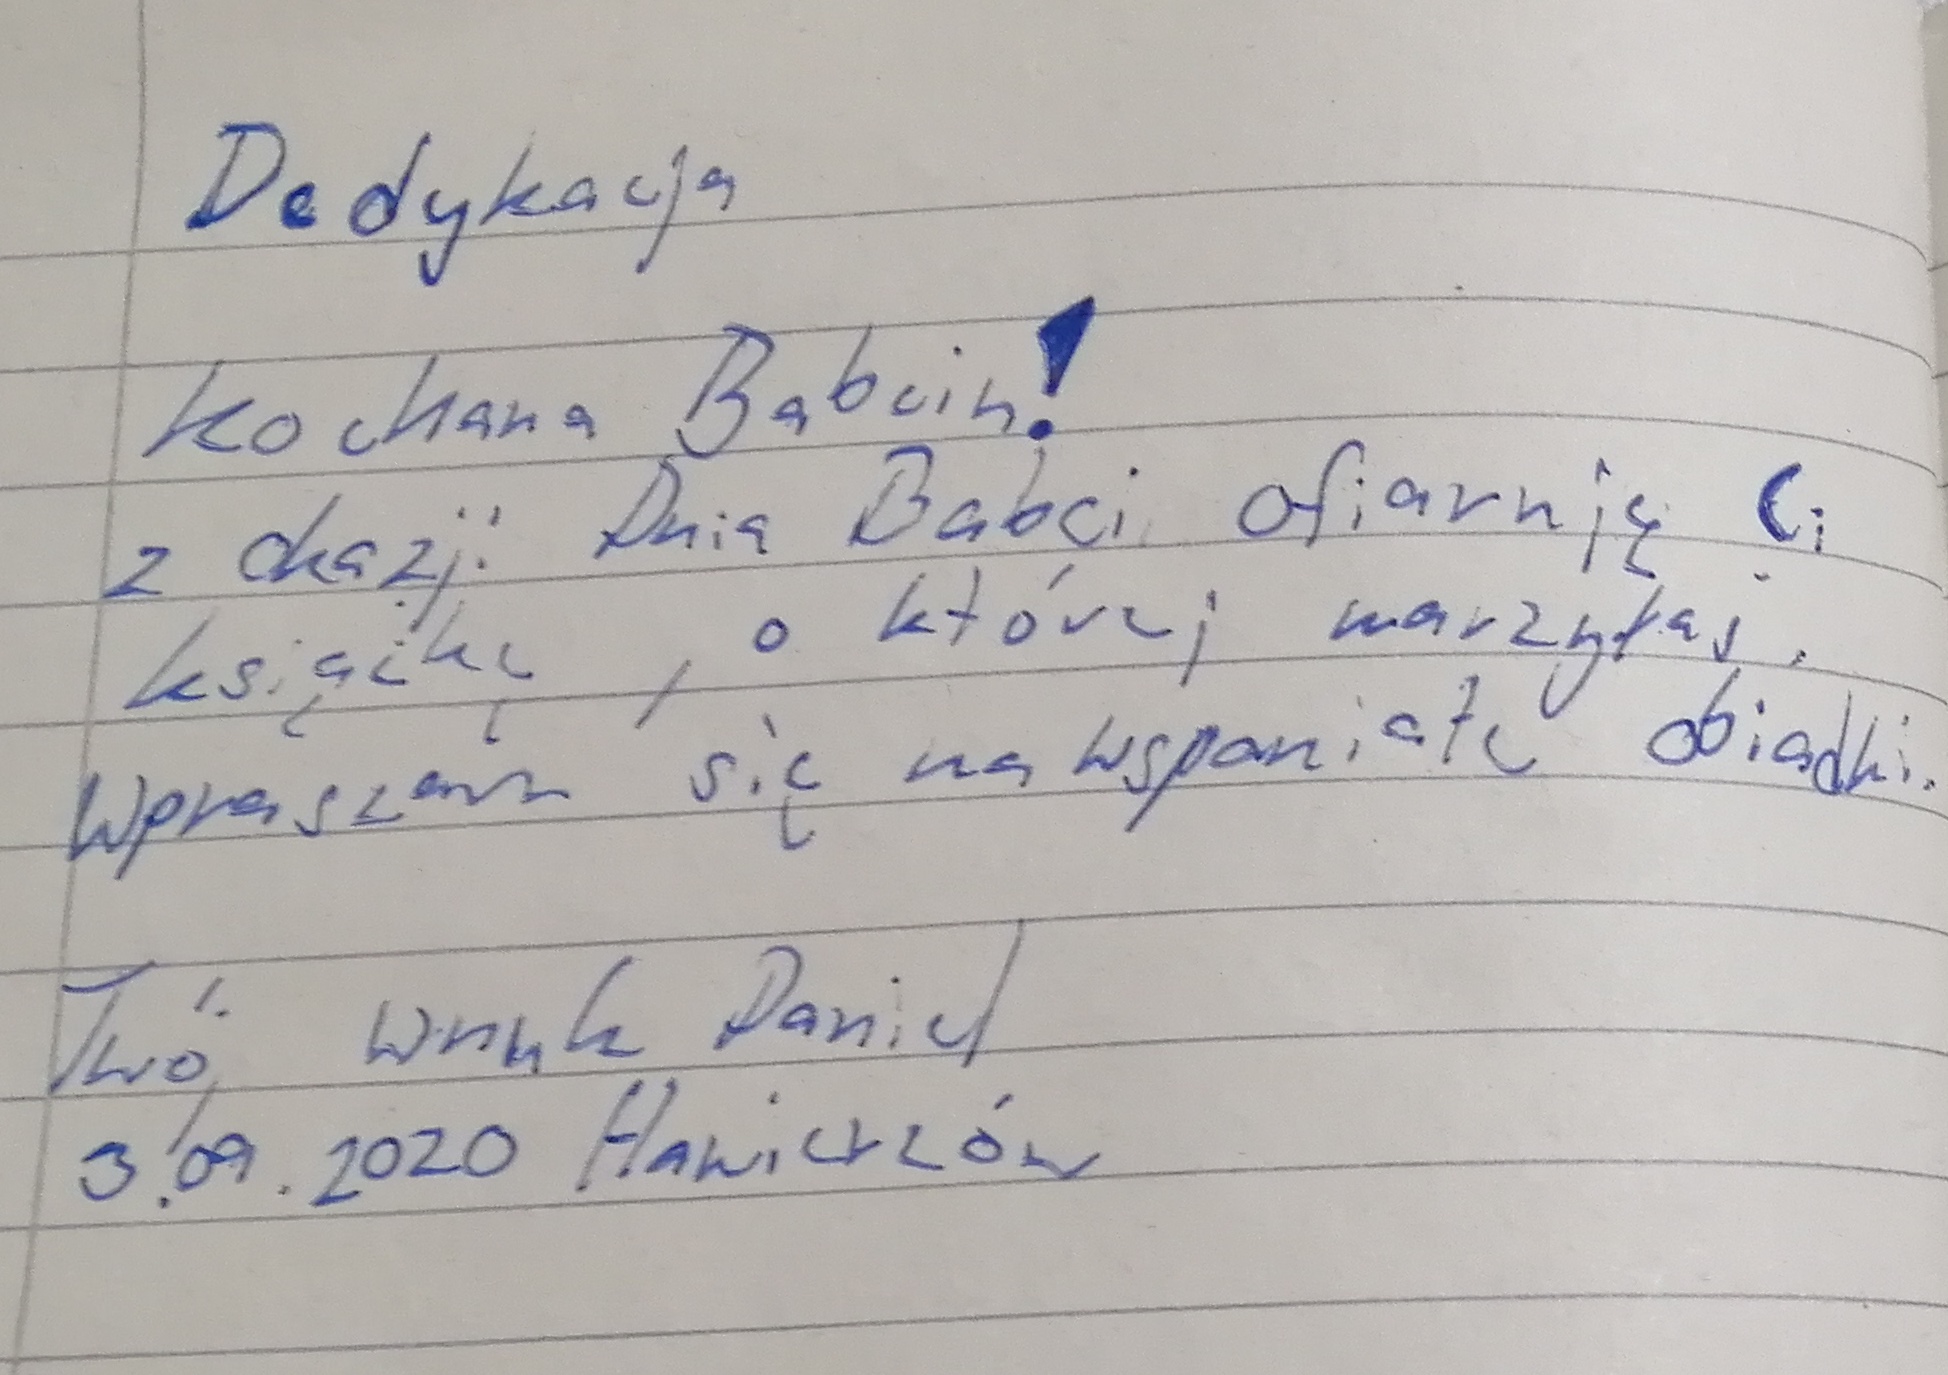 Dedykacja
Kochana Babciu!
z okazji Dnia Babci ofiaruję Ci
książkę, o której marzyłaś.
Wpraszam się na wspaniałe obiadki.
Twój wnuk Daniel
3.09.2020 Hawierzów